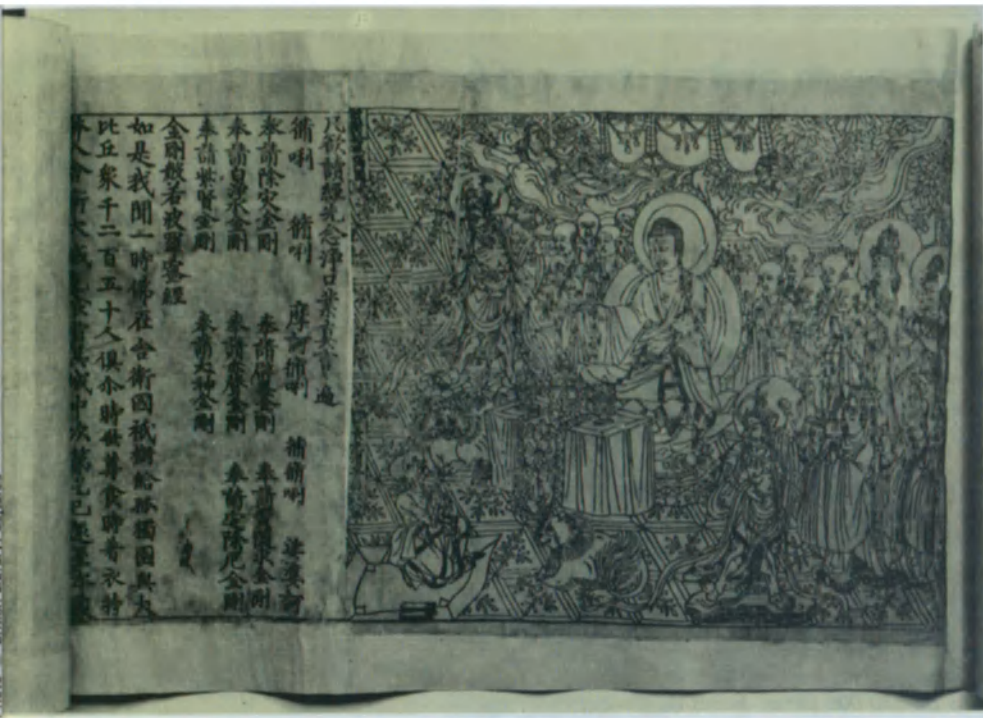 凡欲讀經先念淨口業真言一遍
脩唎 脩唎 摩訶脩唎 脩脩唎 娑婆訶
奉請除灾金剛 奉請辟毒金剛 奉請黃隨求金剛
奉請白淨水金剛 奉請赤聲金剛 奉請定除厄金剛
奉請紫賢金剛 奉請大神金剛
金剛般若波羅蜜經
如是我聞一時佛在舍衛國祇樹給孤獨園與大
比丘衆千二百五十人俱尒時世尊食時著衣持
入舍衛大城乞食 其城中次第乞已還至